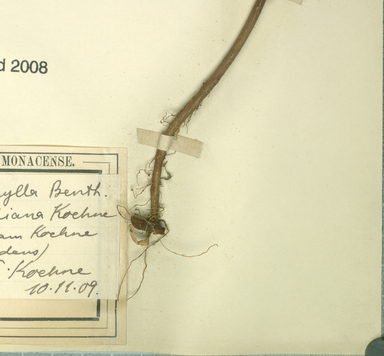 d 2008
MONACENSE.
ylla Benth.
iana Koehne
am Koehne
dens)
Koehne
10.11.09.